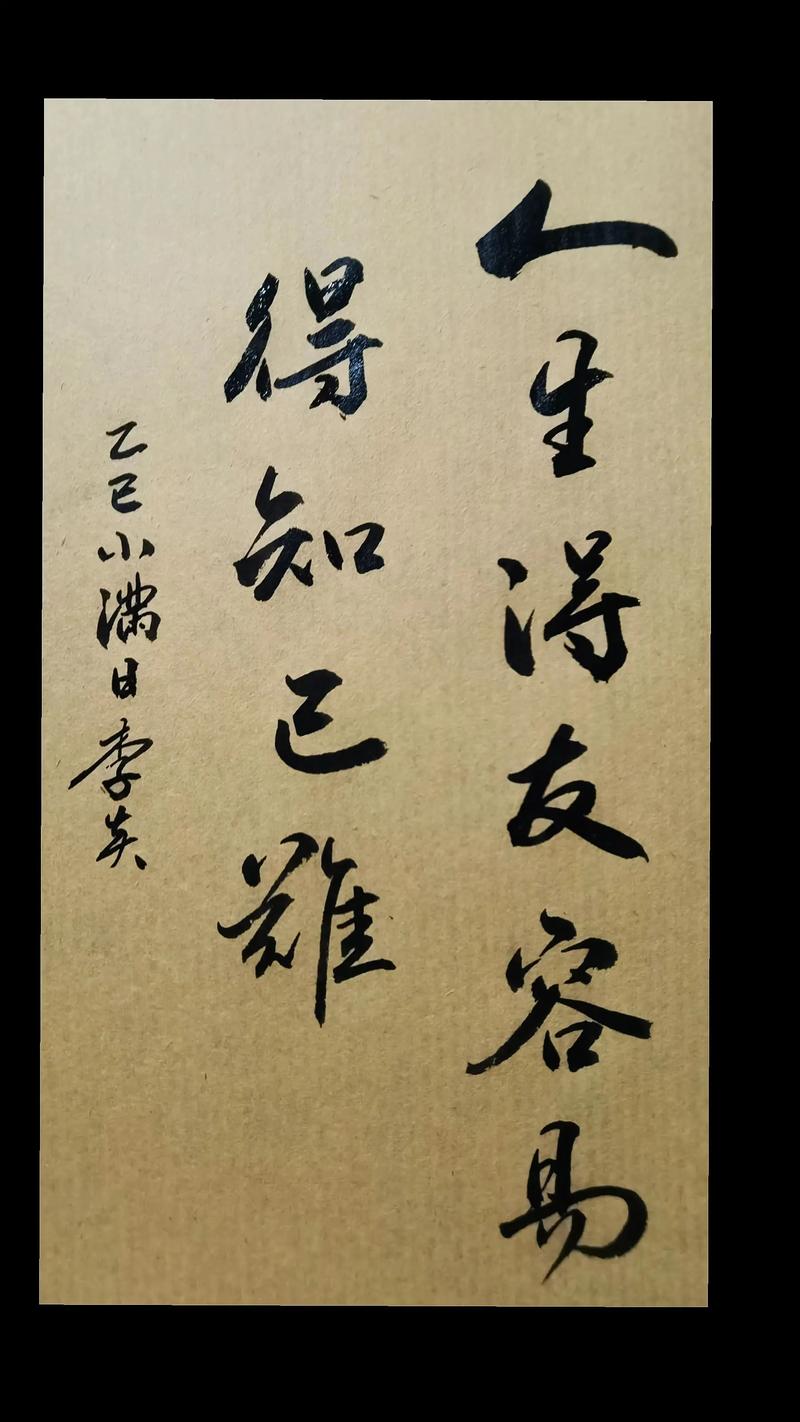 人生得友容易
得知己難
乙巳小滿日李英